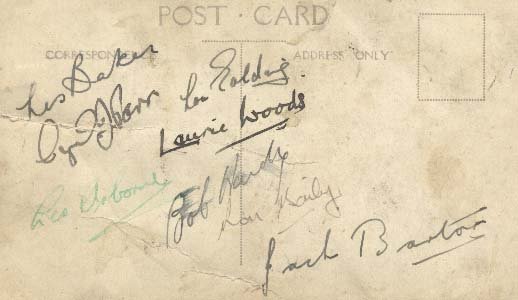 POST - CARD
CORRESPONDENCE
ADDRESS ONLY
Les Baker
Len Golding
Laurie Woods
Les Osborne
Bob Hardy
Ron Baily
Jack Barton